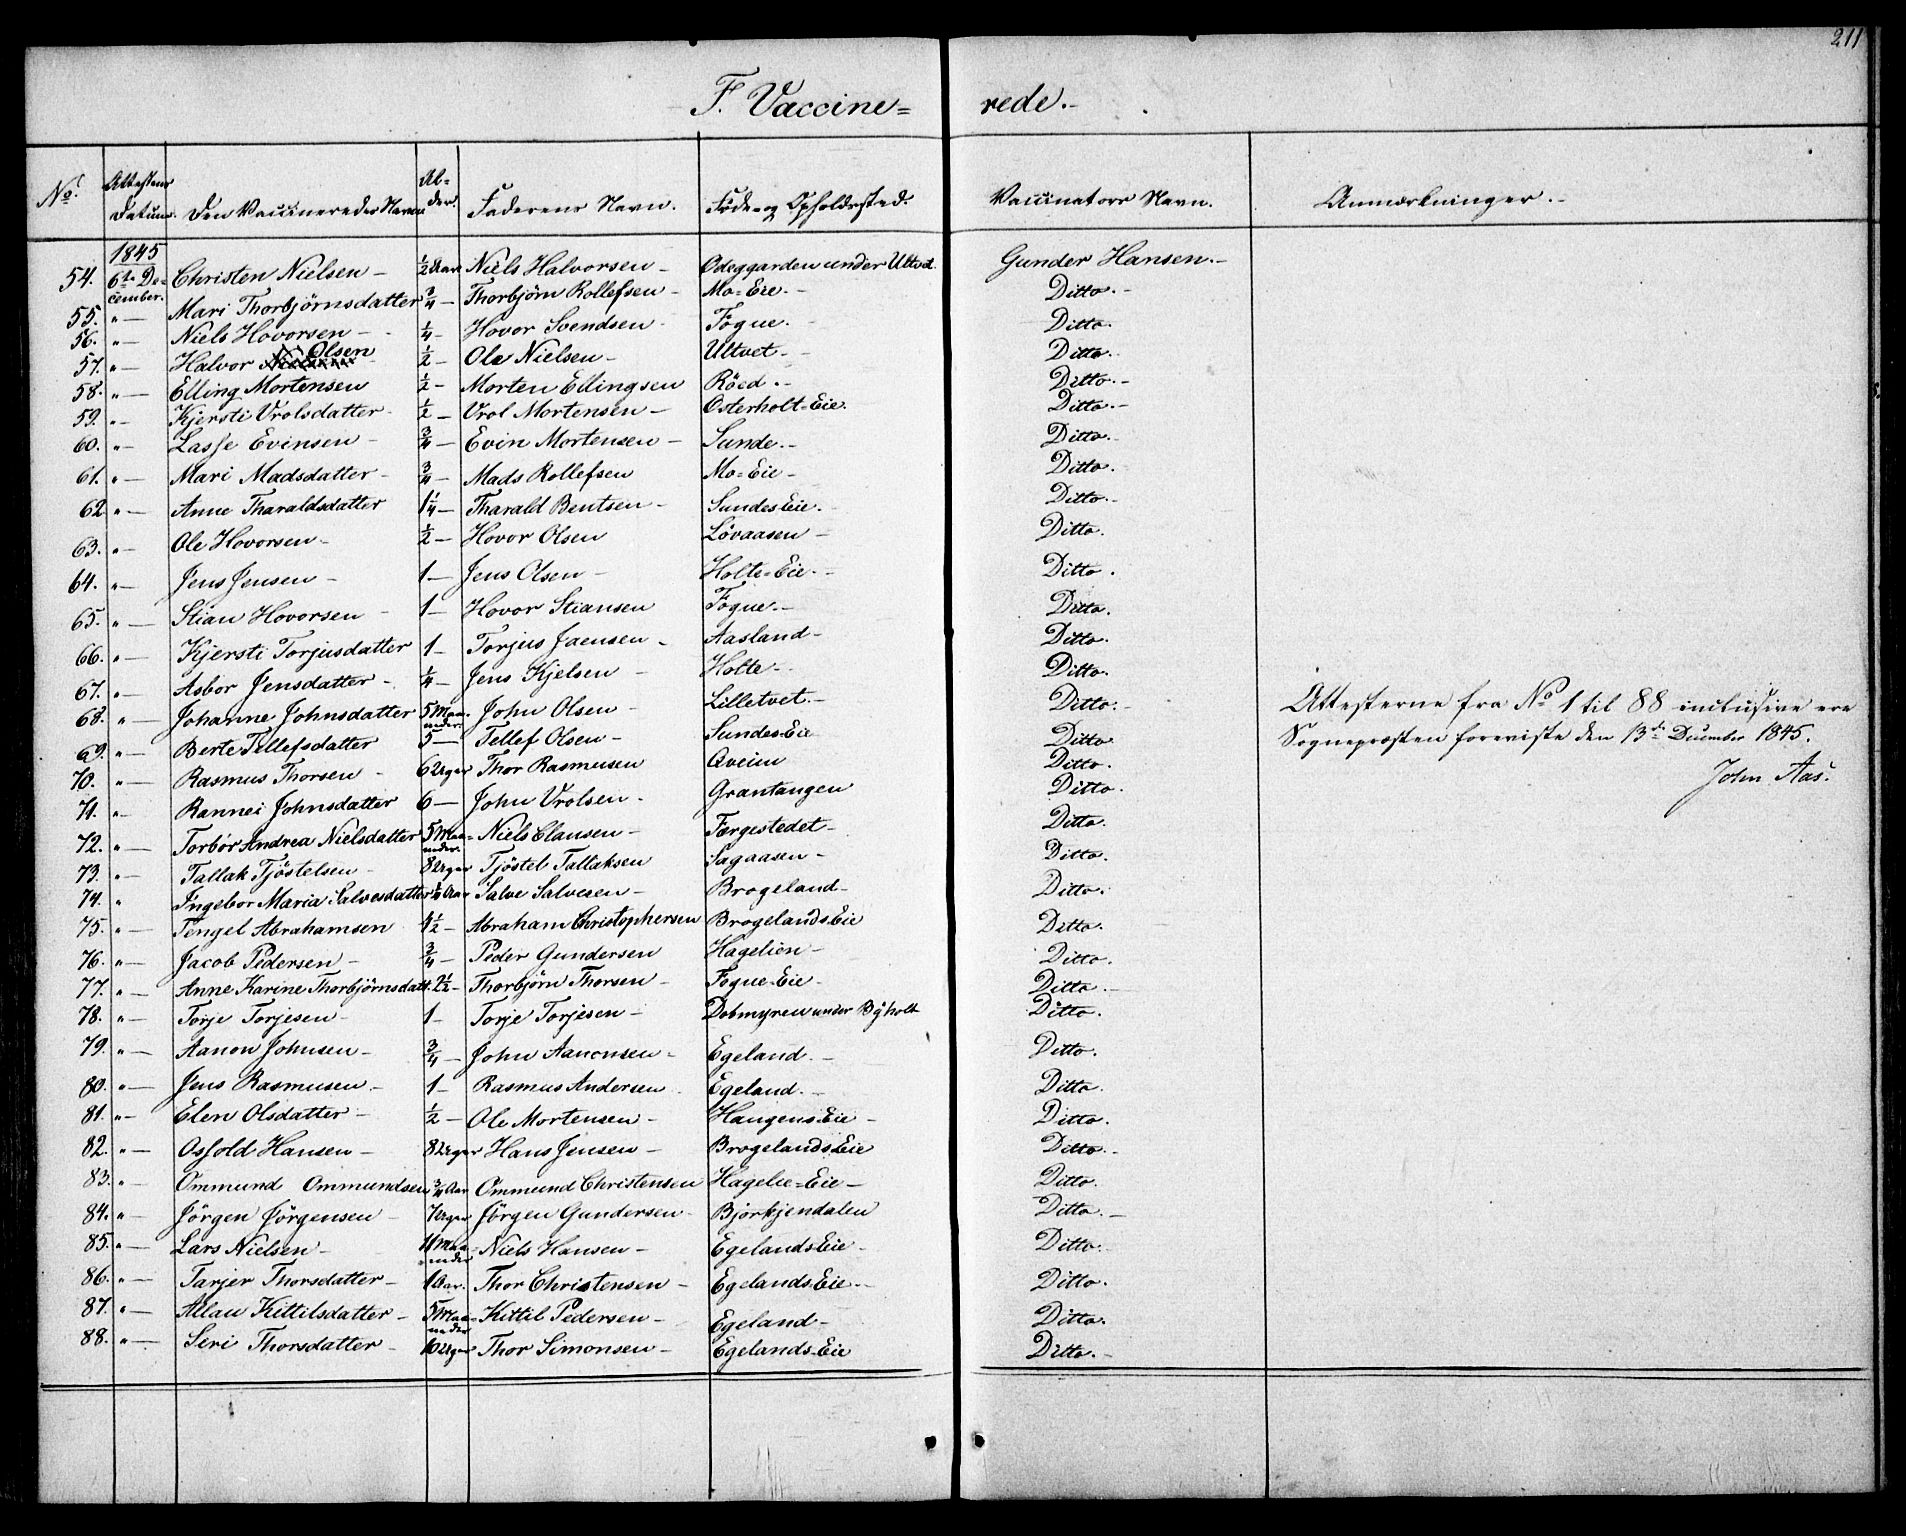 211
F. Vaccine= rede.-
No. Attestens Datum. Den Vaccineredes Navn Alder. Faderens Navn. Føde- og Opholdssted. Vaccinators Navn. Anmærkninger.-
1845
54. 6te December. Christen Nielsen - 1/2 Aar Niels Halvorsen - Ødeggarden under Ultvet. Gunder Hansen.-
55. " — Mari Thorbjörnsdatter 3/4 — Thorbjörn Rollefsen - Mo=Eie.- Ditto.-
56. " — Niels Hovorsen - 1/4 — Hovor Svendsen - Fogne.- Ditto.
57. " — Halvor Olsen 1/2 — Ole Nielsen - Ultvet.- Ditto.
58. " — Elling Mortensen 1/2 — Morten Ellingsen Röed.- Ditto.-
59. " — Kjersti Vrolsdatter - 1/2 — Vrol Mortensen - Osterholt=Eie. Ditto.-
60. " — Lasse Evinsen - 3/4 — Evin Mortensen - Sunde.- Ditto.-
61. " — Mari Madsdatter - 3/4 — Mads Rollefsen Mo=Eie - Ditto.
62 " — Anne Tharaldsdatter 1 1/4 — Tharald Bentsen - Sundes Eie. Ditto.-
63. " — Ole Hovorsen - 1/2 — Hovor Olsen Lövaasen - Ditto.
64. " — Jens Jensen - 1 — Jens Olsen - Holte=Eie.- Ditto.
65. " — Stian Hovorsen - 1 — Hovor Stiansen Fogne.- Ditto.
66. " — Kjersti Torjusdatter 1 — Torjus Jaensen - Aasland - Ditto.
67. " — Asbor Jensdatter - 1/4 — Jens Kjelsen - Holte - Ditto.
68. " — Johanne Johnsdatter 5 Maaneder. John Olsen - Lilletvet.- Ditto.-
69. " — Berte Tellefsdatter 5 — Tellef Olsen - Sundes-Eie Ditto
70. " — Rasmus Thorsen - 6 Uger Thor Rasmusen Qveim Ditto.
71. " — Rannei Johnsdatter 6 — John Vrolsen - Grantangen Ditto.
72. " — Torbor Andrea Nielsdatter 5 Maaneder. Niels Clausen - Færgestedet - Ditto.
73. " — Tallak Tjöstelsen - 8 Uger Tjöstel Tallaksen Sagaasen - Ditto.
74. " Ingebor Maria Salvesdatter 1/4 Aar Salve Salvesen - Brogeland - Ditto.
75. " — Tengel Abrahamsen 4 1/2 — Abraham Christophersen Brogelands Eie Ditto.
76. " — Jacob Pedersen - 3/4 — Peder Gundersen Hagelien - Ditto.
77. " — Anne Karine Thorbjörnsdatt. 2 1/2 — Thorbjörn Thorsen - Fogne-Eie - Ditto.-
78. " — Torje Torjesen - 1 — Torje Torjesen - Dobmyren under Byholt Ditto.
79. " — Aanon Johnsen - 3/4 — John Aanonsen - Egeland.- Ditto.
80. " — Jens Rasmusen - 1 — Rasmus Andersen Egeland.- Ditto.
81. " — Elen Olsdatter - 1/2 — Ole Mortensen - Haugens Eie - Ditto.
82. " — Osfold Hansen - 8 Uger Hans Jensen - Brogelands Eie Ditto.-
83. " — Ommund Ommundsen 3/4 Aar Ommund Christensen Hagelie=Eie - Ditto.
84. " — Jörgen Jörgensen - 7 Uger Jörgen Gundersen - Bjorkjendalen Ditto.-
85. " — Lars Nielsen - 11 Maaneder Niels Hansen - Egelands Eie - Ditto.
86. " — Tarjer Thorsdatter - 1 Aar. Thor Christensen - Egelands Eie.- Ditto.
87. " — Allau Kittilsdatter - 5 Maaneder Kittil Pedersen - Egeland - Ditto.
88. " — Seri Thorsdatter - 10 Uger Thor Simonsen - Egelands-Eie Ditto.-
Attesterne fra No 1 til 88 inclusive ere
Sognepræsten foreviste den 13de December 1845.
John Aas.